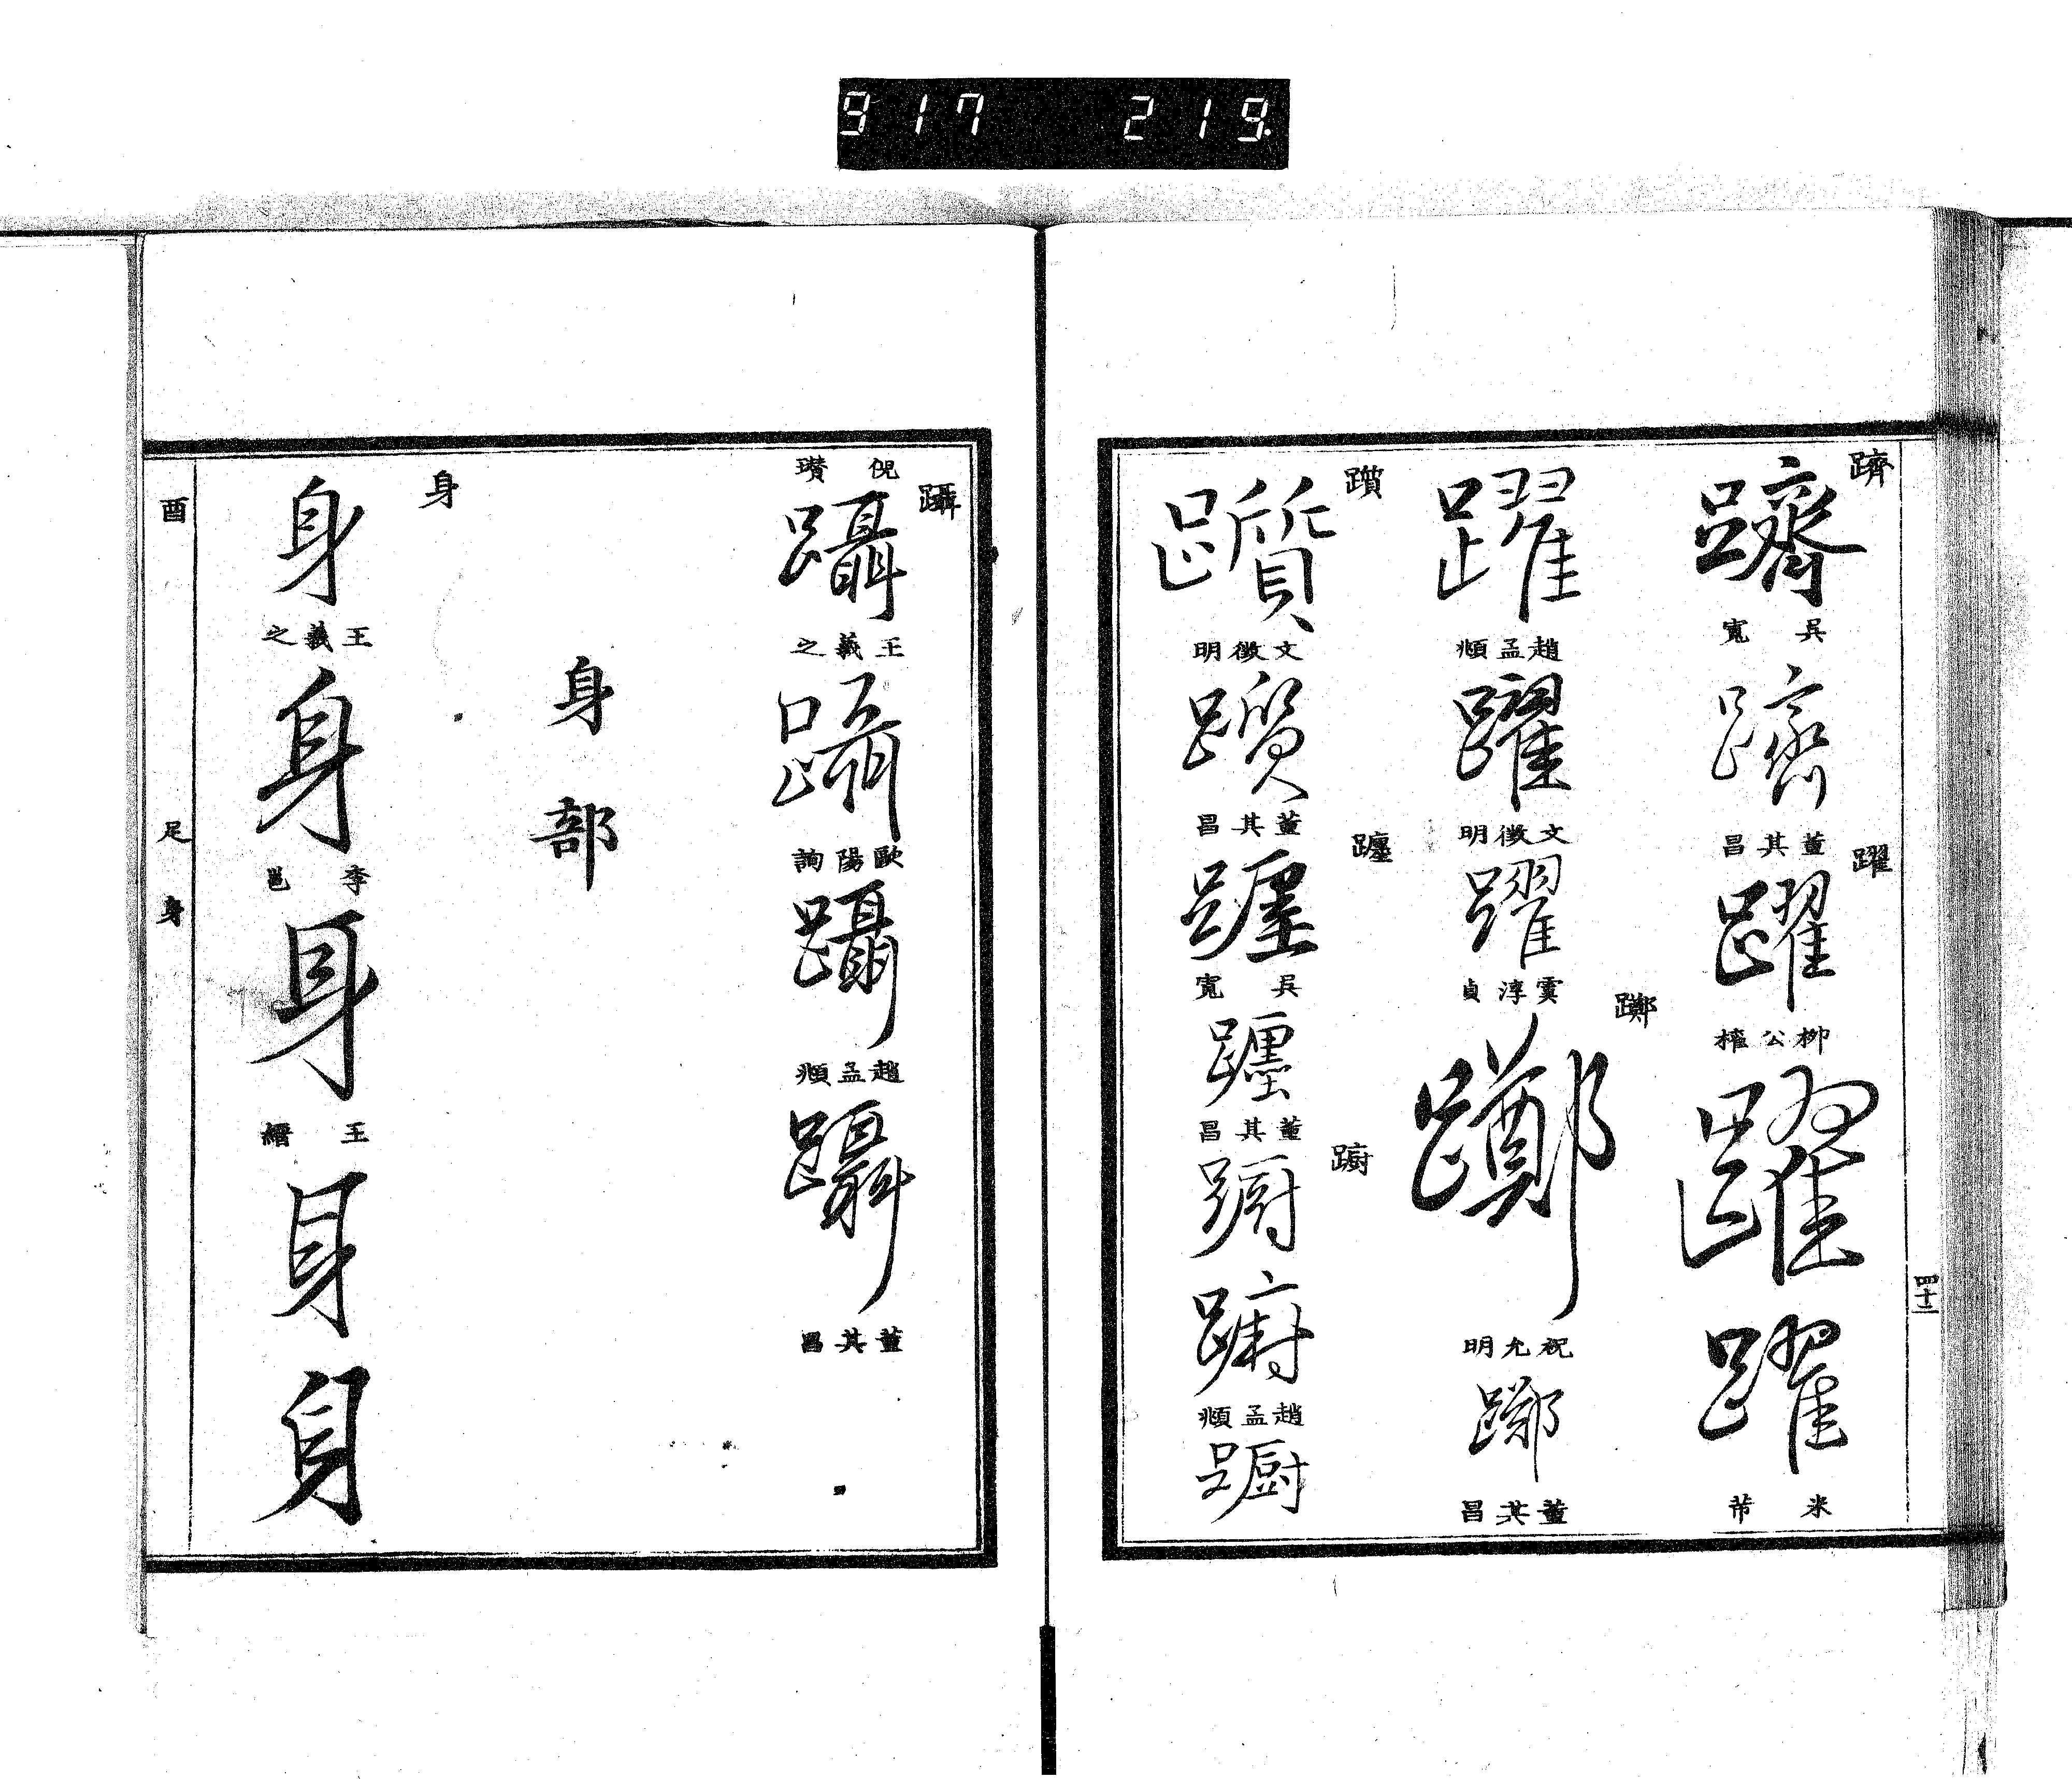 917 219
四十二
躋
躋
吳寬
躋
董其昌
躍
躍
柳公權
躍
躍
米芾
躍
趙孟頫
躍
文徵明
躍
虞淳貞
躑
躑
祝允明
躑
董其昌
躓
躓
文徵明
躓
董其昌
躔
躔
吳寬
躔
董其昌
躕
躕
躕
趙孟頫
躕
倪瓚
躡
躡
王羲之
躡
歐陽詢
躡
趙孟頫
躡
董其昌
身部
身
身
王羲之
身
李邕
身
王縉
身
身
酉
足
身